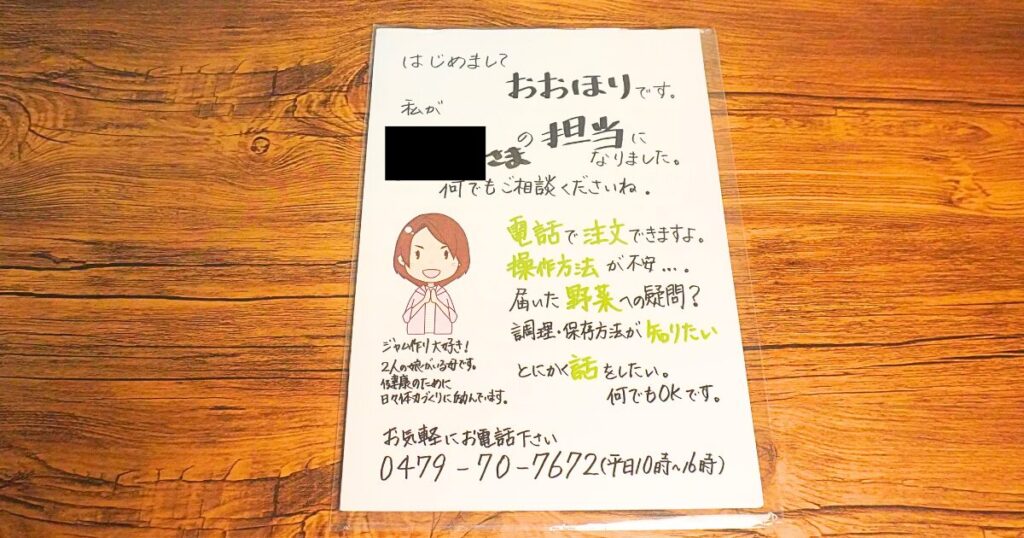 はじめまして
おおほりです。
私が
さまの担当に
なりました。
何でもご相談くださいね。
電話で注文できますよ。
操作方法が不安…。
届いた野菜への疑問?
調理・保存方法が知りたい
とにかく話をしたい。
何でもOKです。
ジャム作り大好き!
2人の娘がいる母です。
健康のために
日々体力づくりに励んでいます。
お気軽にお電話下さい
0479-70-7672(平日10時~16時)